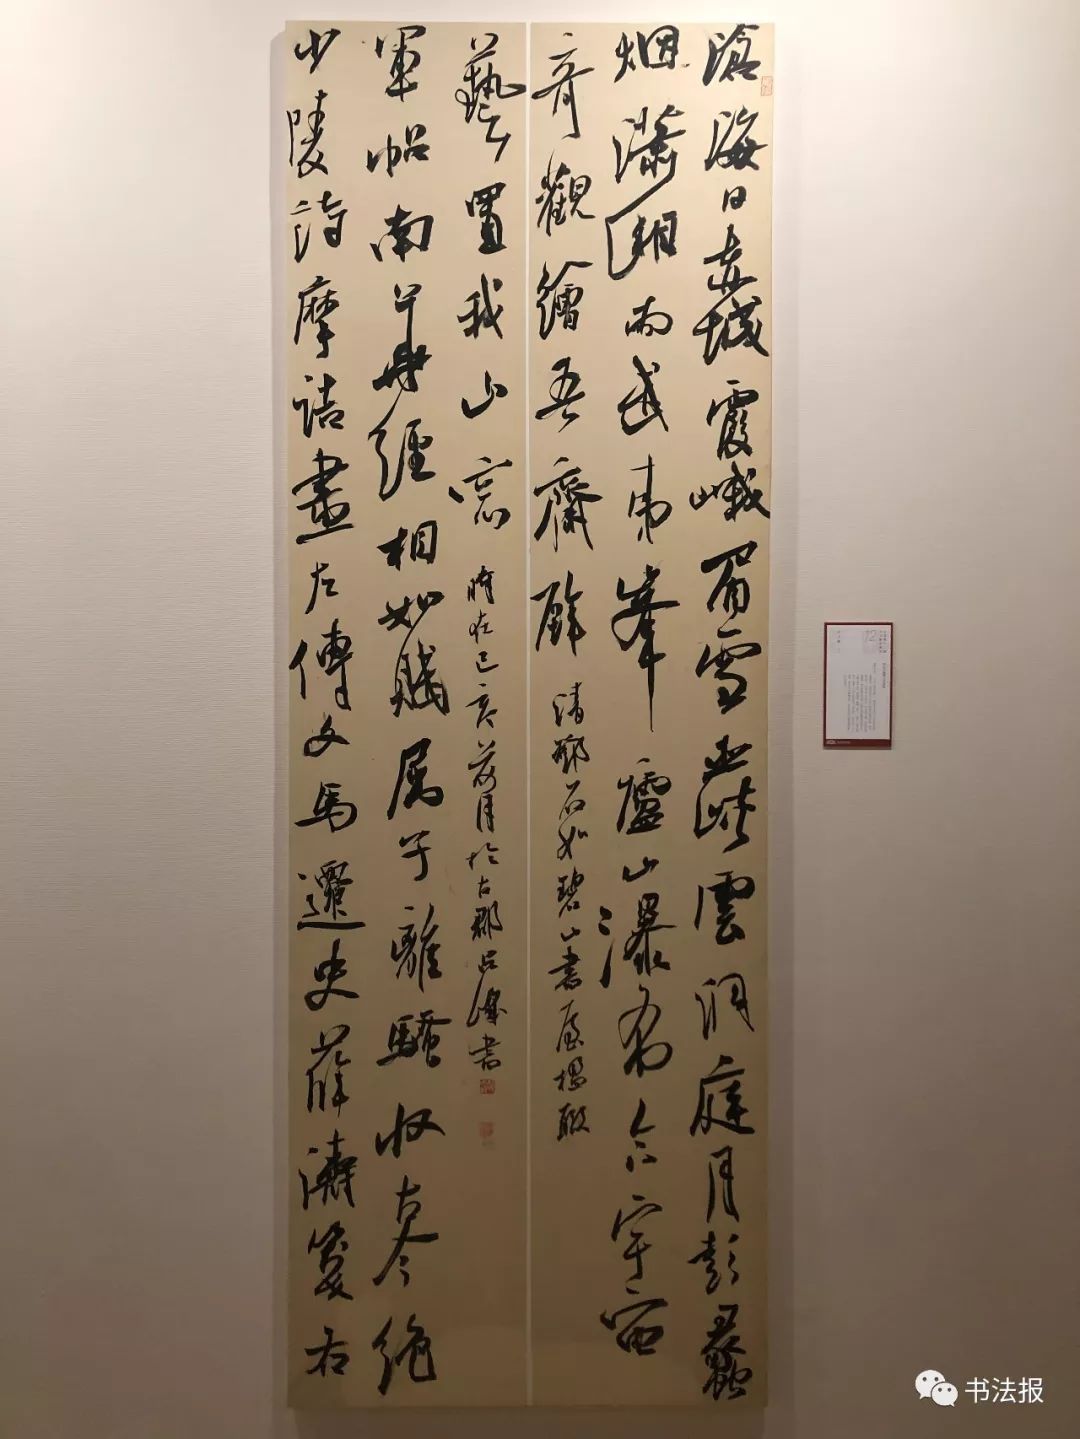 滄海日赤城霞峨眉雪巫峽雲洞庭月彭蠡
烟瀟湘雨武夷峯廬山瀑布合宇宙
奇觀繪吾齋壁
清鄧石如碧山書屋楹聯
少陵詩摩詰畫左傳文馬遷史薛濤箋右
軍帖南華經相如賦屈子離騷收古今絕
藝置我山窗
時在己亥荷月於古郡呂書
书法报